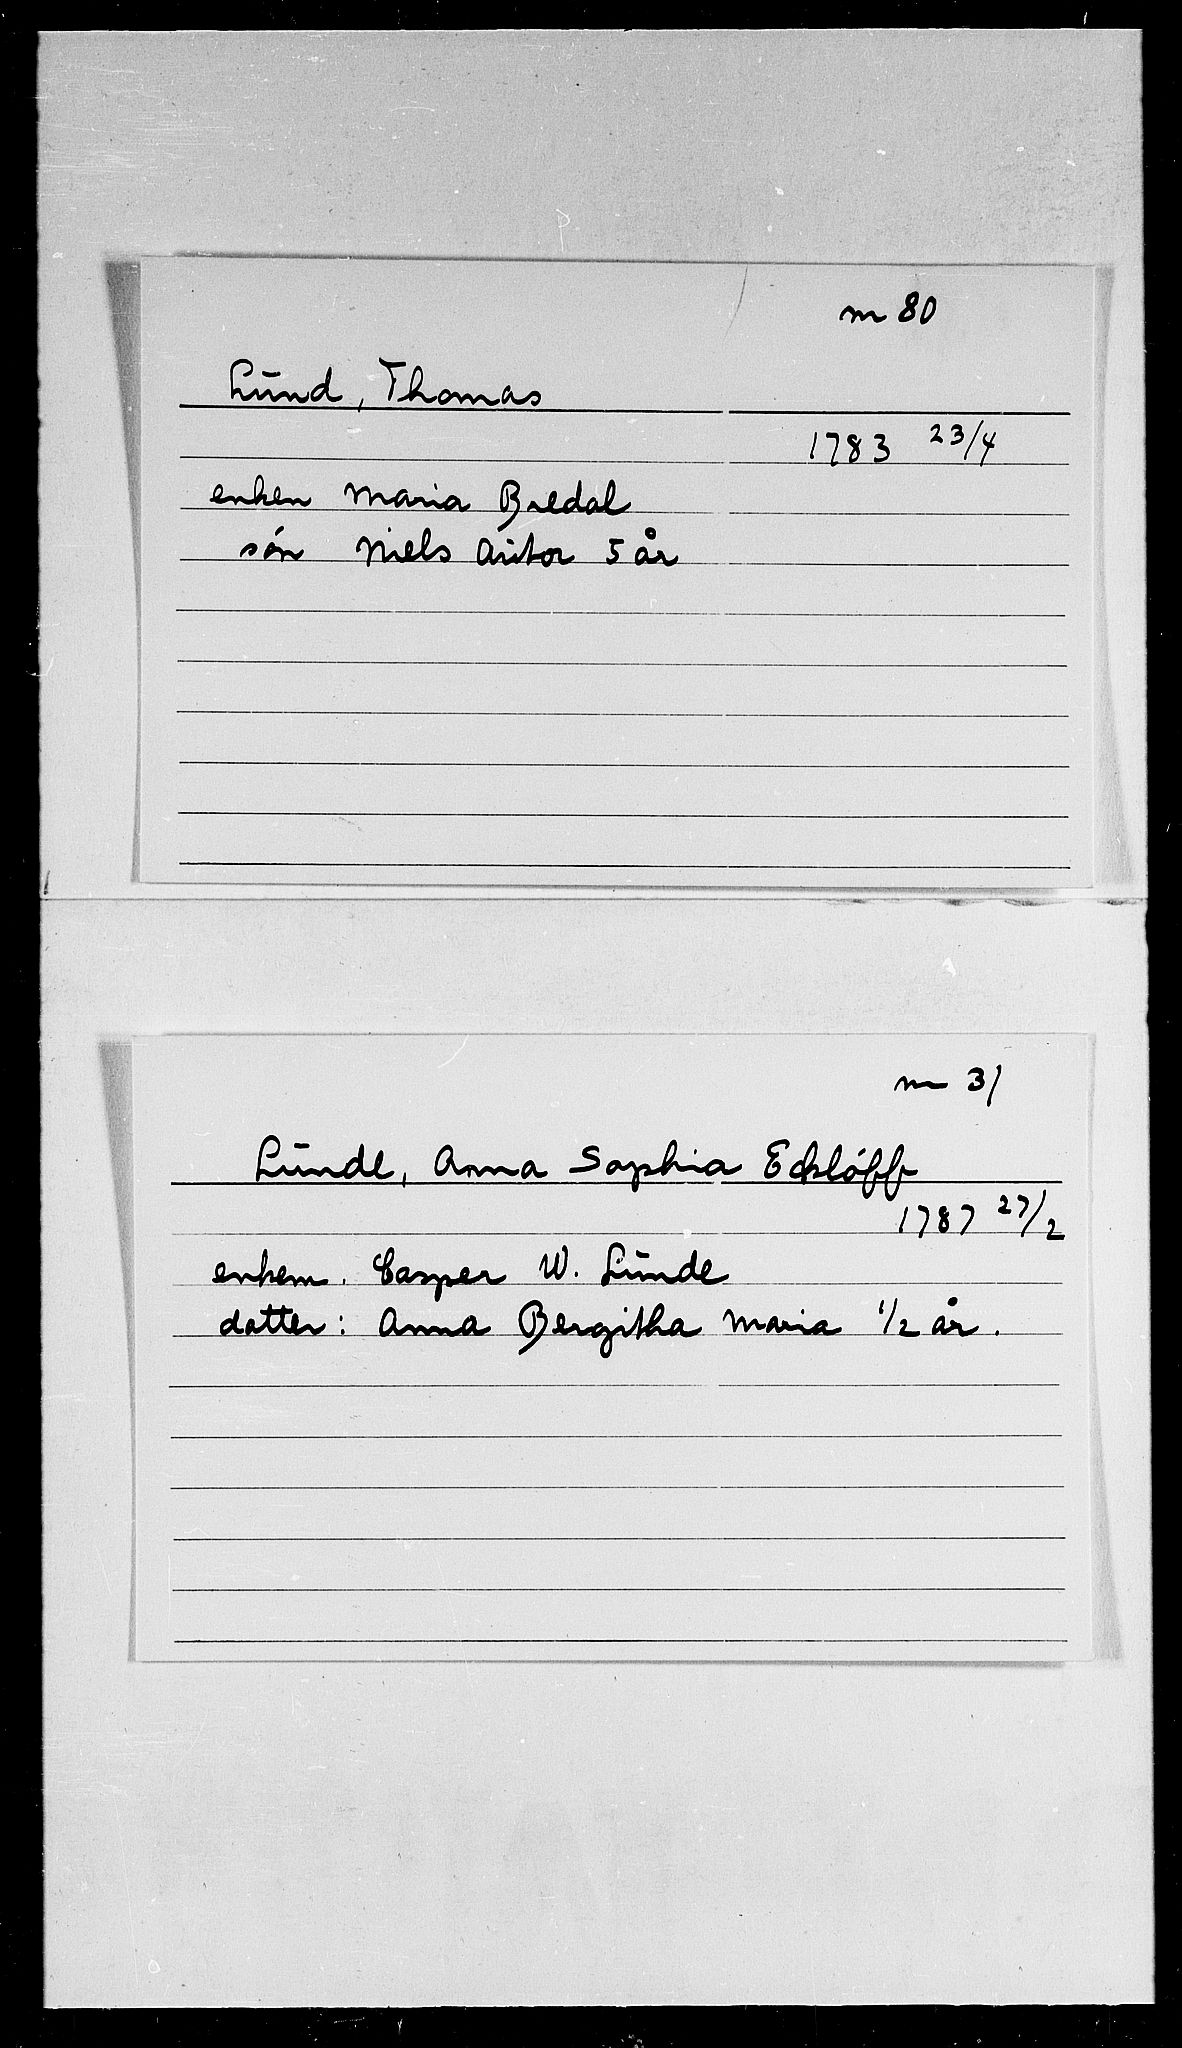 m 80
Lund, Thomas
1783 23/4
enken Maria Bredal
søn Niels Autor 5 år
m 31
Lunde, Anna Sophia Ecklöff
1787 27/2
enkem. Casper W. Lunde
datter: Anna Bergitha Maria 1/2 år.